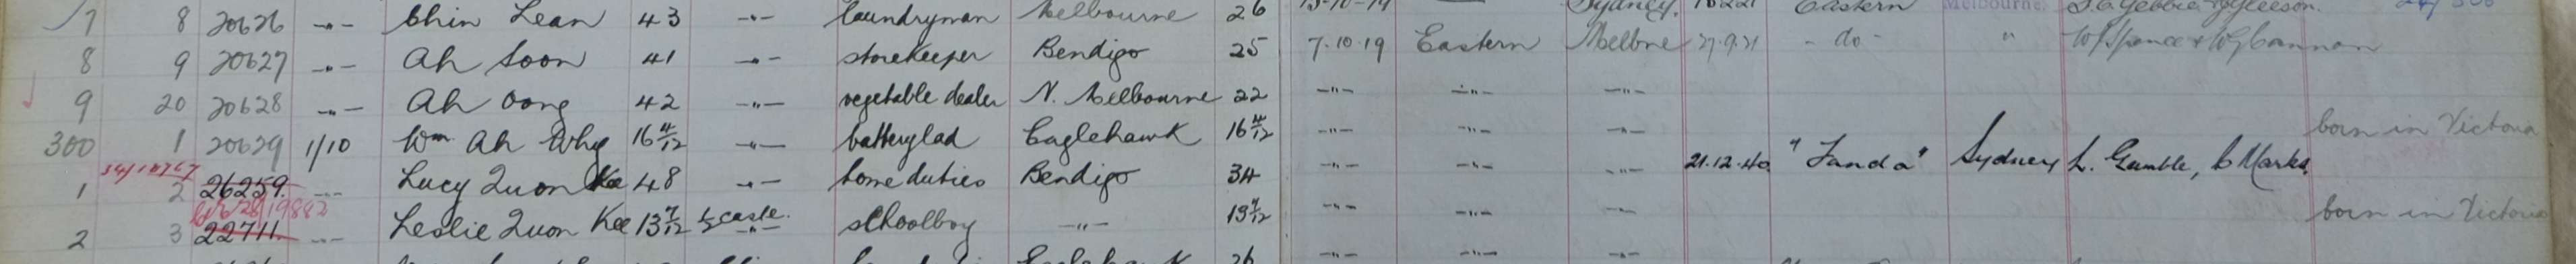 7 8 20626 -"- Chin Lean 43 -"- laundryman Melbourne 26 13-10-19 Sydney Eastern Melbourne
8 9 20627 -"- Ah Soon 41 -"- storekeeper Bendigo 25 7.10.19 Eastern Melbne 27.9.21 -do- "
9 20 20628 -"- Ah Oong 42 -"- vegetable dealer N. Melbourne 22 -"- -"- -"-
300 1 20629 1/10 Wm Ah Why 16 4/12 -"- battery lad Eaglehawk 16 4/12 -"- -"- -"- born in Victoria
1 2 26259 -"- Lucy Quon Kee 48 -"- home duties Bendigo 34 -"- -"- -"- 21.12.40 "Tanda" Sydney L. Gamble, C Marks
2 3 22711 -"- Leslie Quon Kee 13 7/12 ½ caste -"- schoolboy -"- 13 7/12 -"- -"- -"- born in Victoria
26 -"- -"- -"-